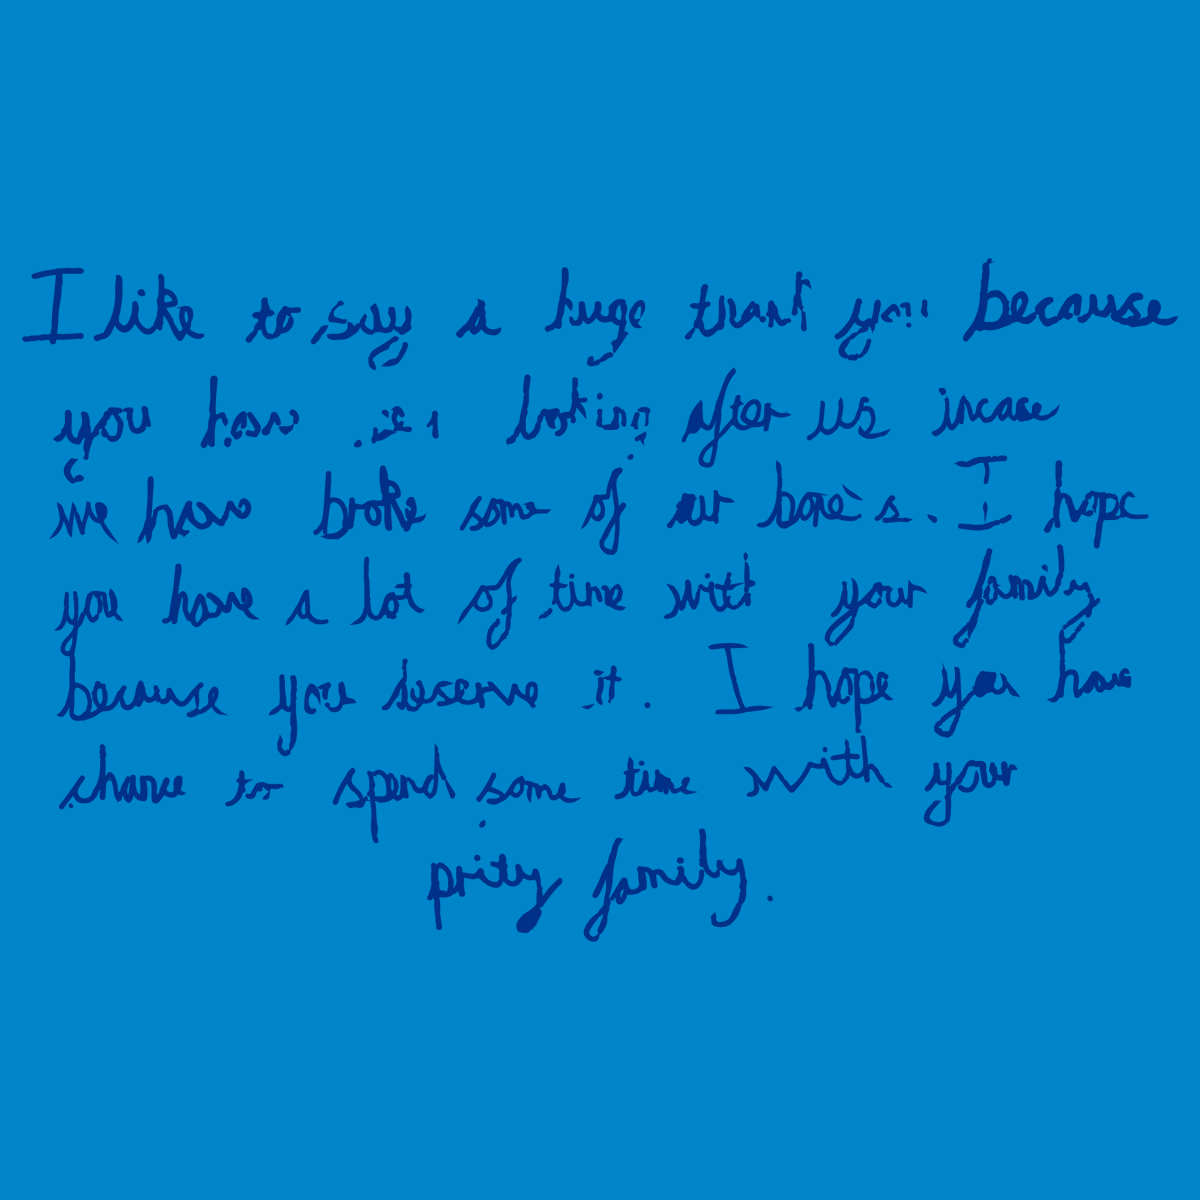 I like to say a huge thank you because
you have looking after us incase
we have broke some of our bone's. I hope
you have a lot of time with your family
because you deserve it. I hope you have
chance to spend some time with your
prity family.